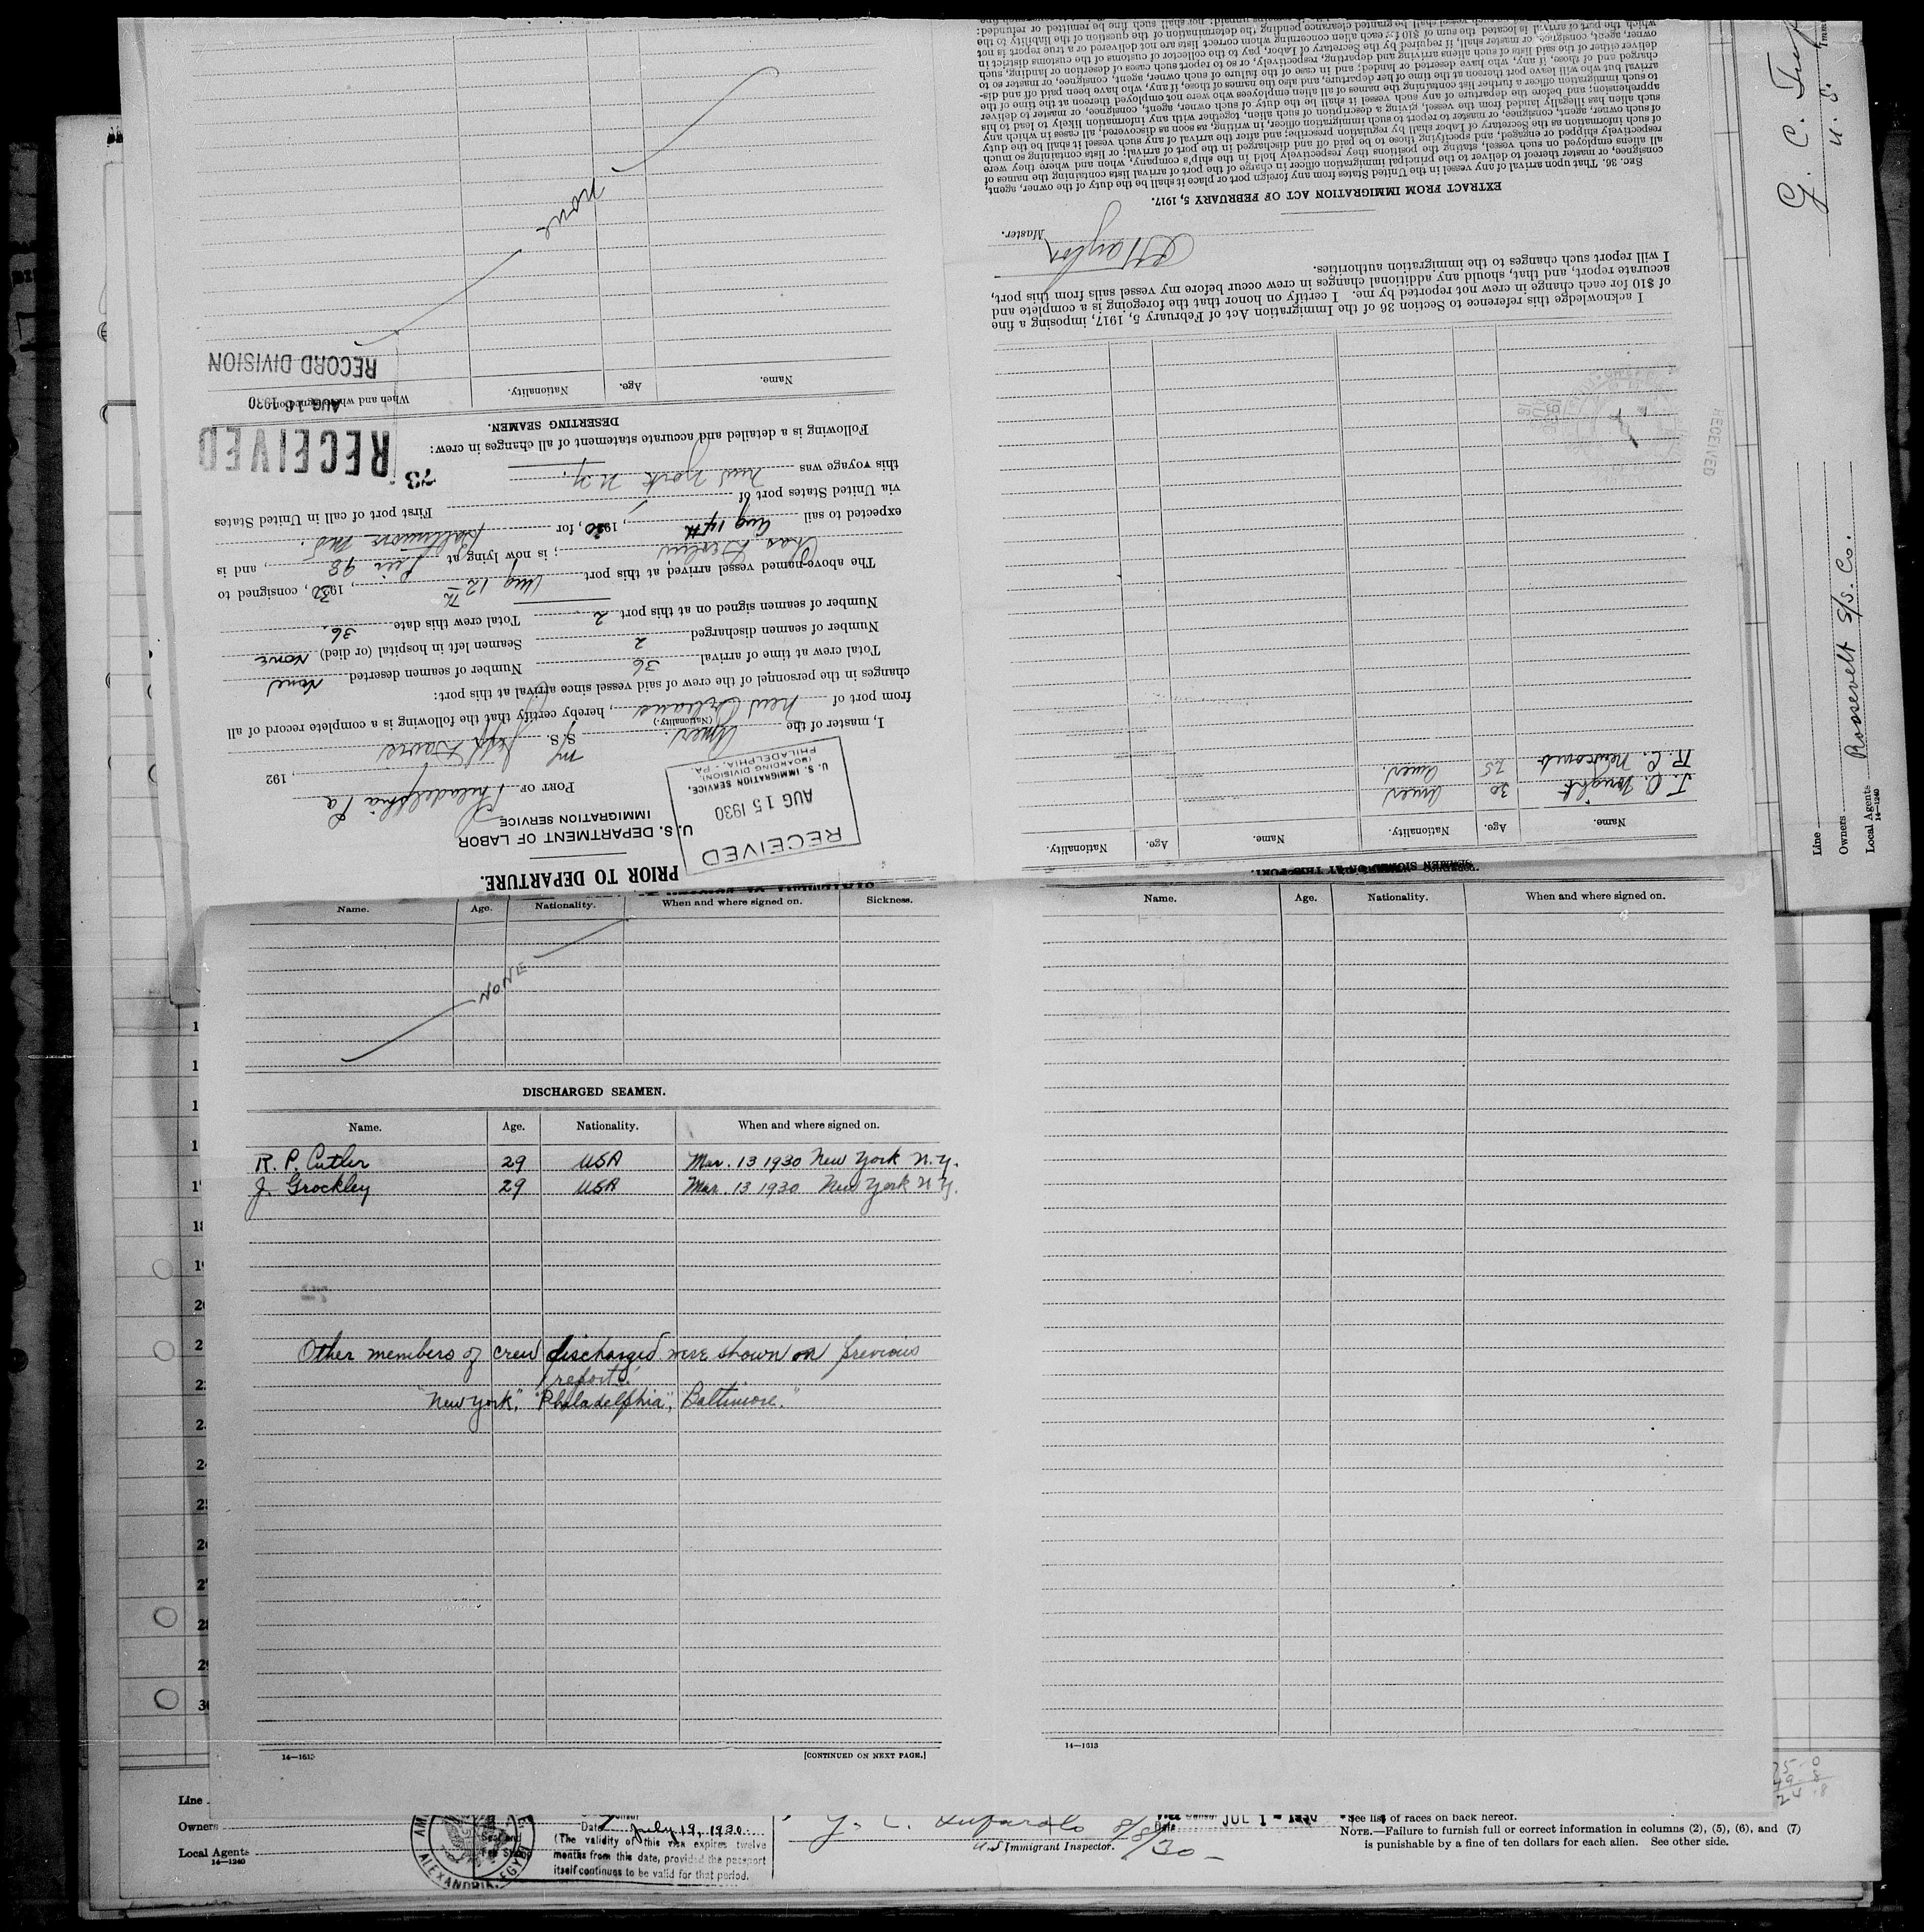 PRIOR TO DEPARTURE.
U. S. DEPARTMENT OF LABOR
IMMIGRATION SERVICE
RECEIVED
AUG 15 1930
U. S. IMMIGRATION SERVICE,
(BOARDING DIVISION)
PHILADELPHIA, - PA.
PORT OF Philadelphia Pa , 192
I, master of the Amer. S/S. M/S Jeff Davis
(Nationality.)
from port of New Orleans , hereby certify that the following is a complete record of all
changes in the personnel of the crew of said vessel since arrival at this port:
Total crew at time of arrival 36 Number of seamen deserted None
Number of seamen discharged 2 Seamen left in hospital (or died) None
Number of seamen signed on at this port 2 Total crew this date 36.
The above-named vessel arrived at this port Aug 12th , 1930, consigned to
Chas ; is now lying at Pier 98 , and is
expected to sail Aug 14th , 1930, for Baltimore Md.
via United States port of First port of call in United States
this voyage was New York N.Y. 73
Following is a detailed and accurate statement of all changes in crew:
RECEIVED
AUG 16 1930
RECORD DIVISION
DESERTING SEAMEN.
Name. Age. Nationality. When and where signed on.
none
Name. Age. Nationality. Name. Age. Nationality.
J. C. Wright 30 Amer.
R. C. Newcomb 25 Amer.
RECEIVED
I acknowledge this reference to Section 36 of the Immigration Act of February 5, 1917, imposing a fine
of $10 for each change in crew not reported by me. I certify on honor that the foregoing is a complete and
accurate report, and that, should any additional changes in crew occur before my vessel sails from this port,
I will report such changes to the immigration authorities.
Master.
EXTRACT FROM IMMIGRATION ACT OF FEBRUARY 5, 1917.
SEC. 36. That upon arrival of any vessel in the United States from any foreign port or place it shall be the duty of the owner, agent,
consignee, or master thereof to deliver to the principal immigration officer in charge of the port of arrival lists containing the names of
all aliens employed on such vessel, stating the positions they respectively hold in the ship's company, when and where they were
respectively shipped or engaged, and specifying those to be paid off and discharged in the port of arrival; or lists containing so much
of such information as the Secretary of Labor shall by regulation prescribe; and after the arrival of any such vessel it shall be the duty
of such owner, agent, consignee, or master to report to such immigration officer, in writing, as soon as discovered, all cases in which any
such alien has illegally landed from the vessel, giving a description of such alien, together with any information likely to lead to his
apprehension; and before the departure of any such vessel it shall be the duty of such owner, agent, consignee, or master to deliver
to such immigration officer a further list containing the names of all alien employees who were not employed thereon at the time of the
arrival but who will leave port thereon at the time of her departure, and also the names of those, if any, who have been paid off and dis-
charged and of those, if any, who have deserted or landed; and in case of the failure of such owner, agent, consignee, or master so to
deliver either of the said lists of such aliens arriving and departing, respectively, or so to report such cases of desertion or landing, such
owner, agent, consignee, or master shall, if required by the Secretary of Labor, pay to the collector of customs of the customs district in
which the port of arrival is located the sum of $10 for each alien concerning whom correct lists are not delivered or a true report is not
Line
Owners Roosevelt S/S. Co.
Local Agents
14—1240
G. C.
U. S.
Name. Age. Nationality. When and where signed on. Sickness.
NONE
DISCHARGED SEAMEN.
Name. Age. Nationality. When and where signed on.
R. P. Cutler 29 USA Mar. 13 1930 New York N.Y.
J. Grockley 29 USA Mar. 13 1930 New York N.Y.
Other members of crew discharged were shown on previous
reports
"New York", "Philadelphia", "Baltimore."
14—1613 [CONTINUED ON NEXT PAGE.]
Name. Age. Nationality. When and where signed on.
14—1613
Line
Owners
Local Agents
14—1240
ALEXANDRIA, EGYPT
Date July 19, 1930.
(The validity of this visa expires twelve
months from this date, provided the passport
itself continues to be valid for that period.
8/8/30
U.S. Immigrant Inspector.
Date JUL 1 - 1930
See list of races on back hereof.
NOTE.—Failure to furnish full or correct information in columns (2), (5), (6), and (7)
is punishable by a fine of ten dollars for each alien. See other side.